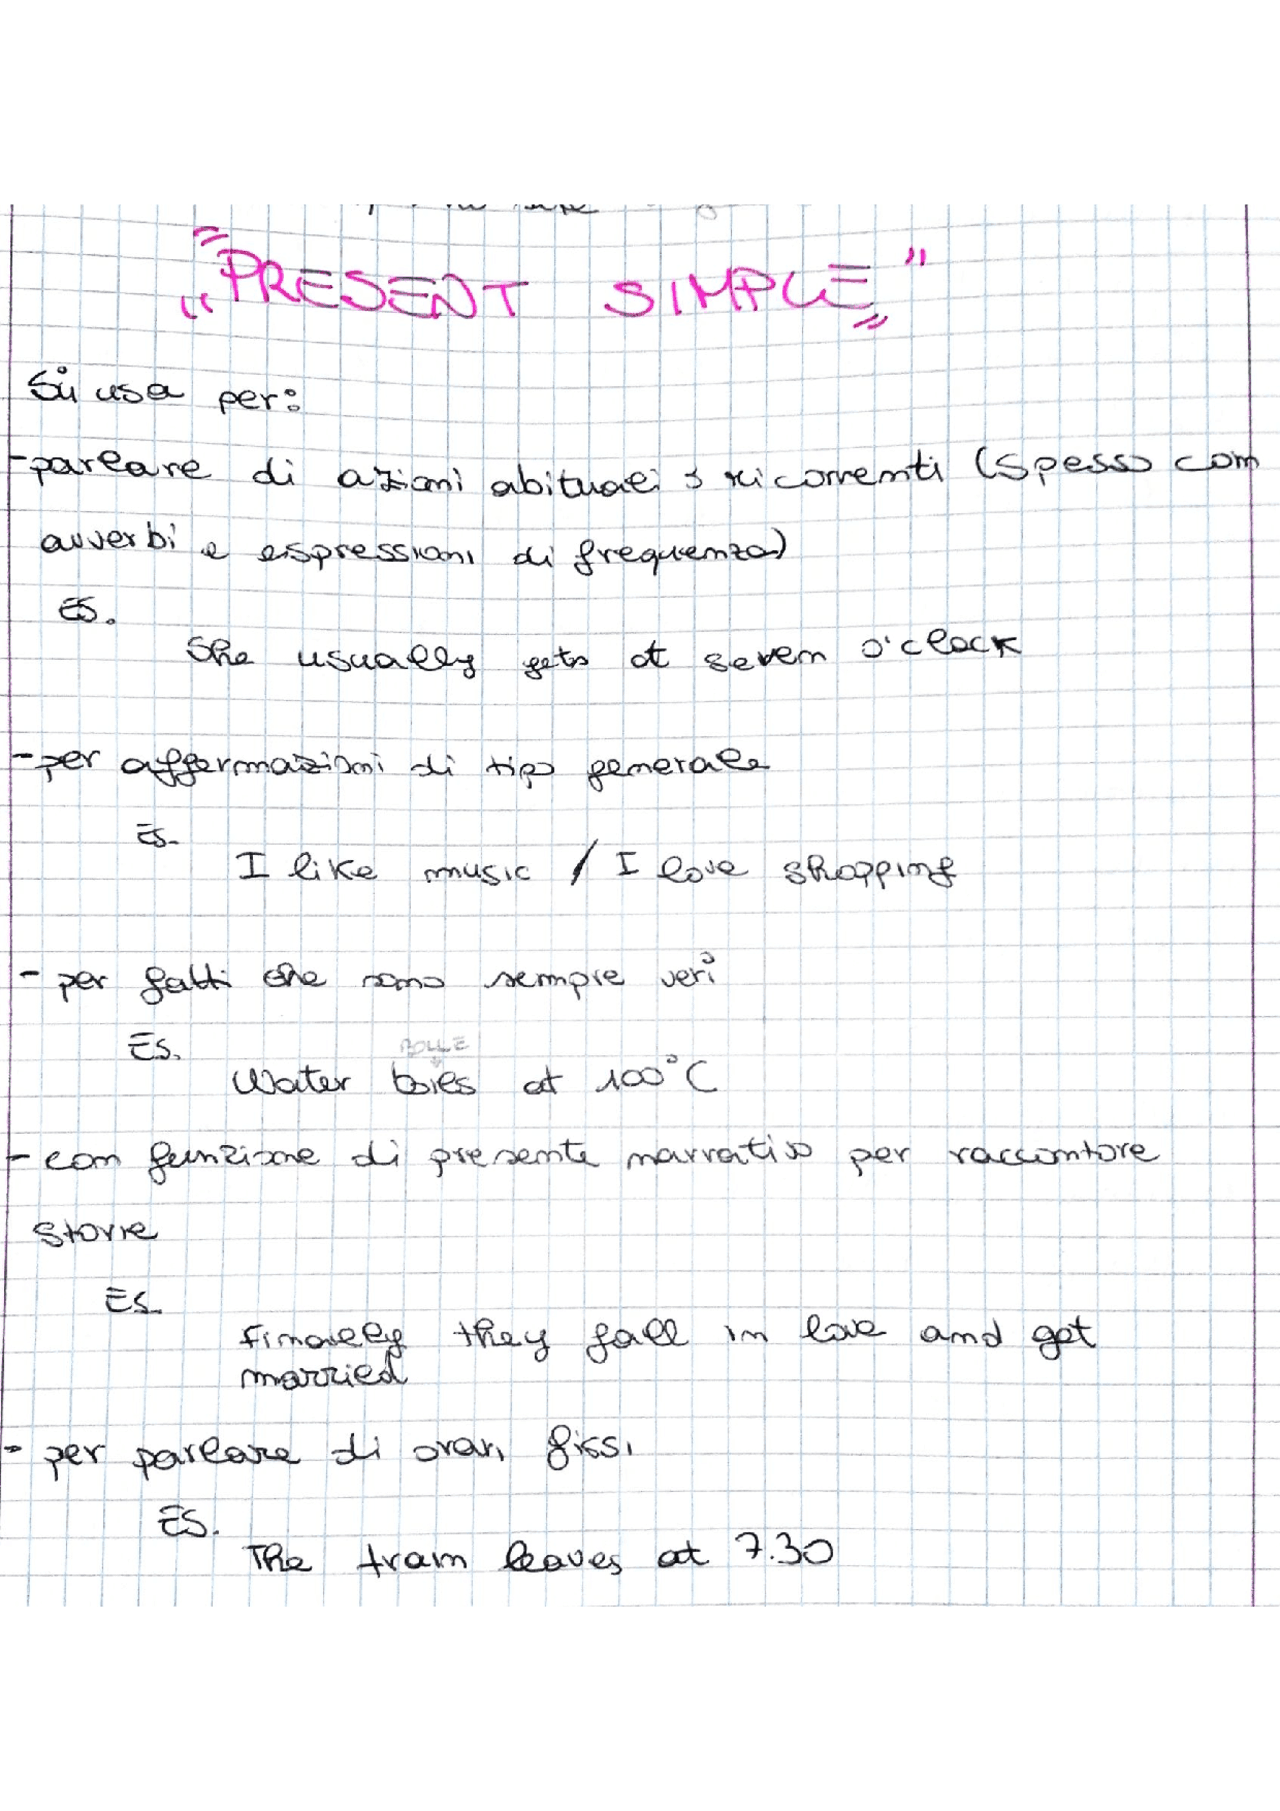 "PRESENT SIMPLE"
Si usa per:
-parlare di azioni abituali o ricorrenti (spesso con
avverbi e espressioni di frequenza)
ES.
She usually gets at seven o'clock
-per affermazioni di tipo generale
ES.
I like music / I love shopping
- per fatti che sono sempre veri
ES.
BOLLE
Water boies at 100°C
- con funzione di presente narrativo per raccontare
storie
ES.
Finally they fall in love and get
married
- per parlare di orari fissi
ES.
The train leaves at 7.30